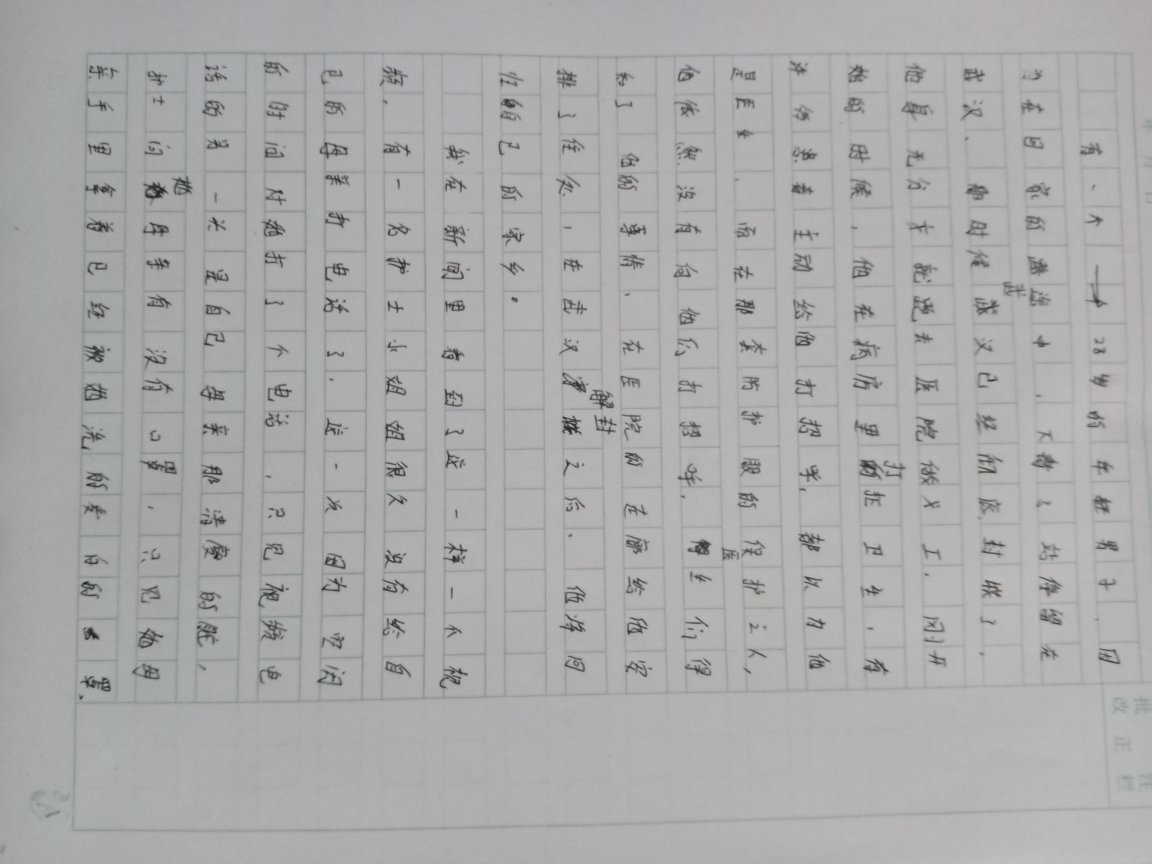 有一个一个28岁的年轻男子,因
为在回家的途中,不料了站停留在
武汉、那时候武汉已经彻底封城了,
他身无分文就跑去医院做义工,刚开
始的时候,他在病房里打扫卫生,有
许多患者主动给他打招呼,都以为他
是医生,而在那套防护服的保护之人,
他依然没有向他们打招呼,医生们得
知了他的事情,在医院的走廊给他安
排了住处,在武汉解封之后、他洋回
性的自己的家乡。
我在新闻里看到了这一样一个视
频,有一名护士小姐姐很久没有给自
己的母亲打电话了,这一次因为空闲
的时间对她打了个电话,只见视频电
话的另一头是自己母亲那清瘦的脸,
护士问她母亲有没有口罩,只见她母
亲手里拿着已经被她洗的发白的口罩、
批改
正栏